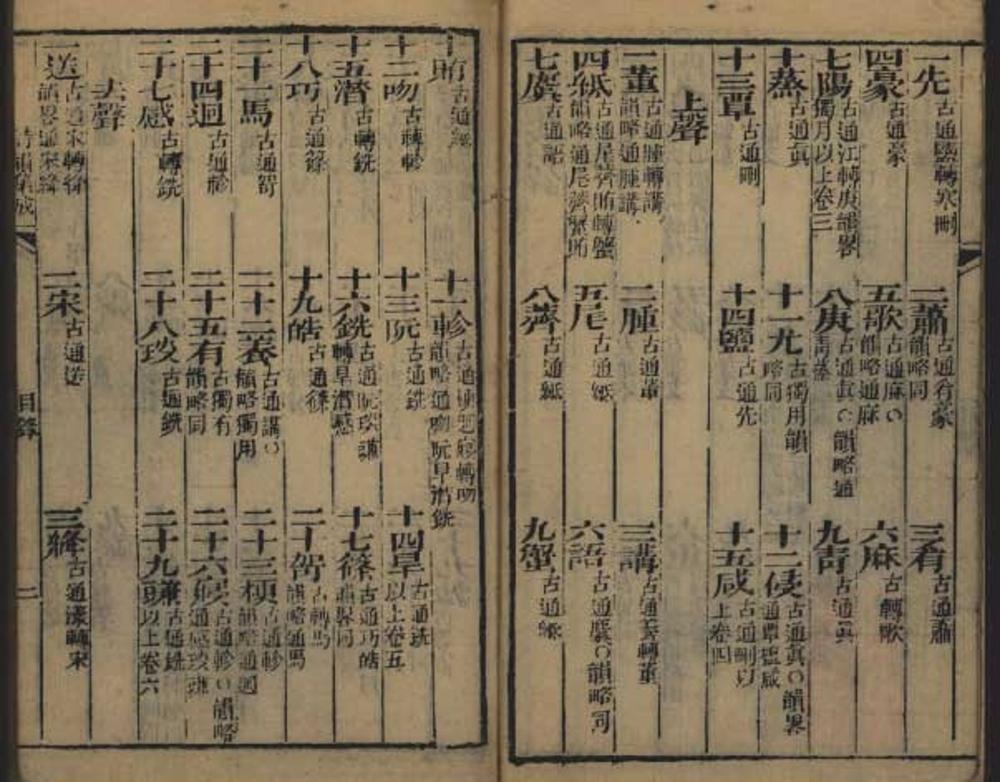 一先古通鹽轉寒刪 二蕭古通肴豪韻略同 三肴古通蕭
四豪古通豪 五歌古通麻○韻略通麻 六麻古轉歌
七陽古通江轉庚韻畧獨用以上卷三 八庚古通真○韻略通青蒸 九青古通真
十蒸古通真 十一尤古獨用韻略同 十二侵古通真○韻畧通覃鹽咸
十三覃古通刪 十四鹽古通先 十五咸古通刪以上卷四
上聲
一董古通腫轉講韻略通腫講 二腫古通董 三講古通養轉董
四紙古通尾薺賄轉蟹韻略通尾薺蟹賄 五尾古通紙 六語古通麌○韻略同
七麌古通語 八薺古通紙 九蟹古通紙
十賄古通紙 十一軫古通梗迥寑轉吻韻略通吻阮旱潸銑
十二吻古轉軫 十三阮古通銑 十四旱古通銑以上卷五
十五潸古轉銑 十六銑古通阮琰豏轉旱潸感 十七篠古通巧皓韻畧同
十八巧古通篠 十九皓古通篠 二十哿古轉馬韻略通馬
二十一馬古通哿 二十二養古通講○韻略獨用 二十三梗古通軫韻略通迥
二十四迥古通軫 二十五有古獨有韻略同 二十六寑古通軫○韻略通感琰豏
二十七感古轉銑 二十八琰古通銑 二十九豏古通銑以上卷六
去聲
一送古通宋轉絳韻畧通宋絳 二宋古通送 三絳古通漾轉宋
目錄 二